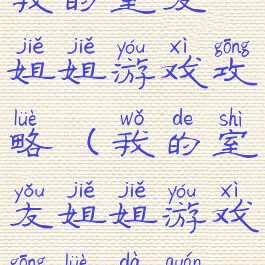 我的室友
jiě jiě yóu xì gōng
姐姐游戏攻
lüè wǒ de shì
略（我的室
yǒu jiě jiě yóu xì
友姐姐游戏
gōng lüè dà quán